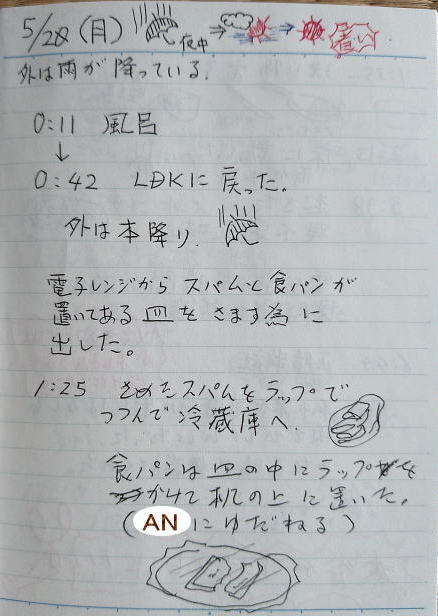 5/28 (月) 夜中 → → 暑い
外は雨が降っている.
0:11 風呂
↓
0:42 LDKに戻った.
外は本降り.
電子レンジからスパムと食パンが
置いてある皿をさます為に
出した。
1:25 さめたスパムをラップで
つつんで冷蔵庫へ.
食パンは皿の中にラップを
かけて机の上に置いた.
(ANにゆだねる)